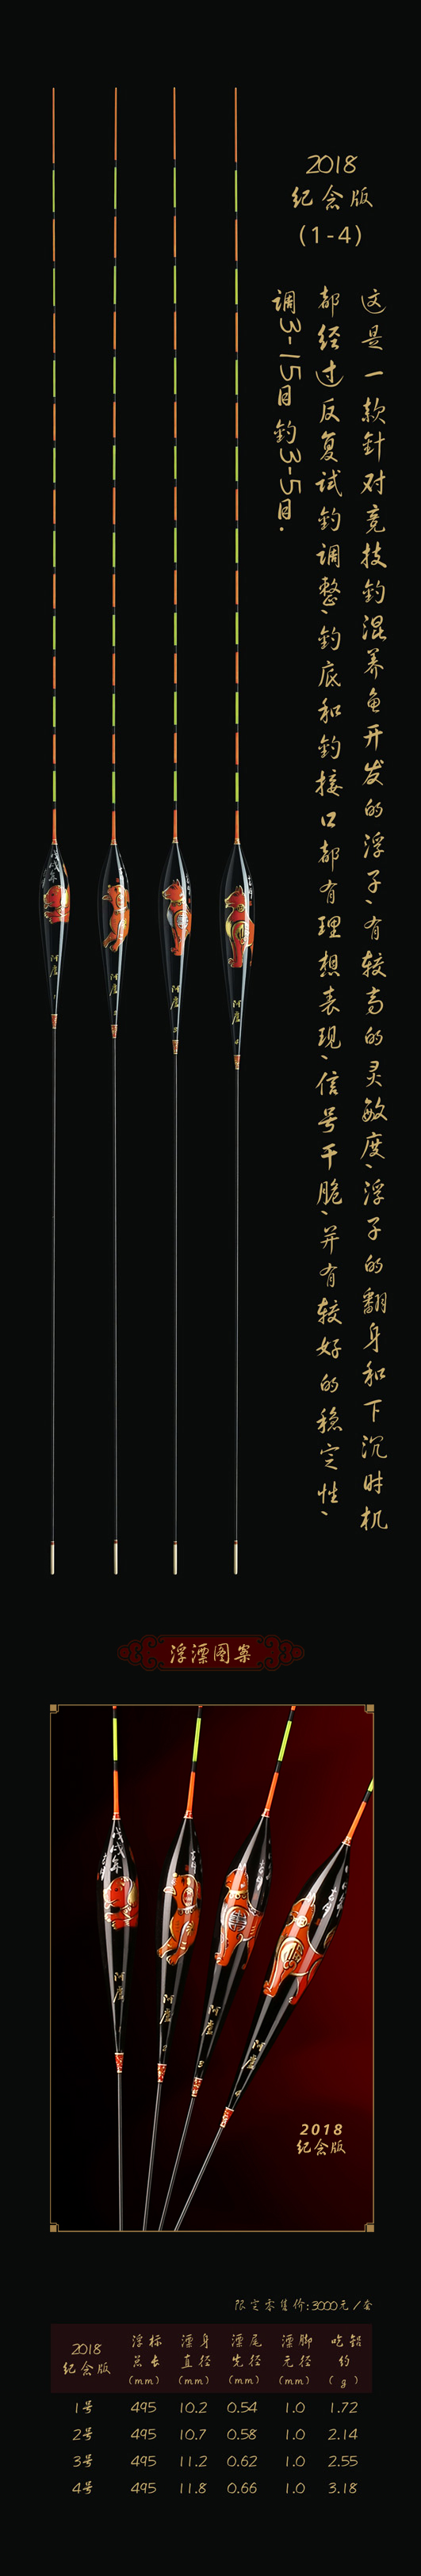 2018
纪念版
(1-4)
这是一款針对竞技釣混养鱼开发的浮子、有较高的灵敏度、浮子的翻身和下沉时机
都经过反复试釣调整、釣底和釣接口都有理想表现、信号干脆、并有较好的稳定性、
调3-15目 釣3-5目.
戊戌年
阿盧
阿盧
阿盧
阿盧
浮漂图案
戊戌年
阿盧
阿盧
阿盧
阿盧
2018
纪念版
限定零售价:3000元/套
2018 纪念版 浮标总长(mm) 漂身直径(mm) 漂尾先径(mm) 漂脚元径(mm) 吃铅约(g)
1号 495 10.2 0.54 1.0 1.72
2号 495 10.7 0.58 1.0 2.14
3号 495 11.2 0.62 1.0 2.55
4号 495 11.8 0.66 1.0 3.18